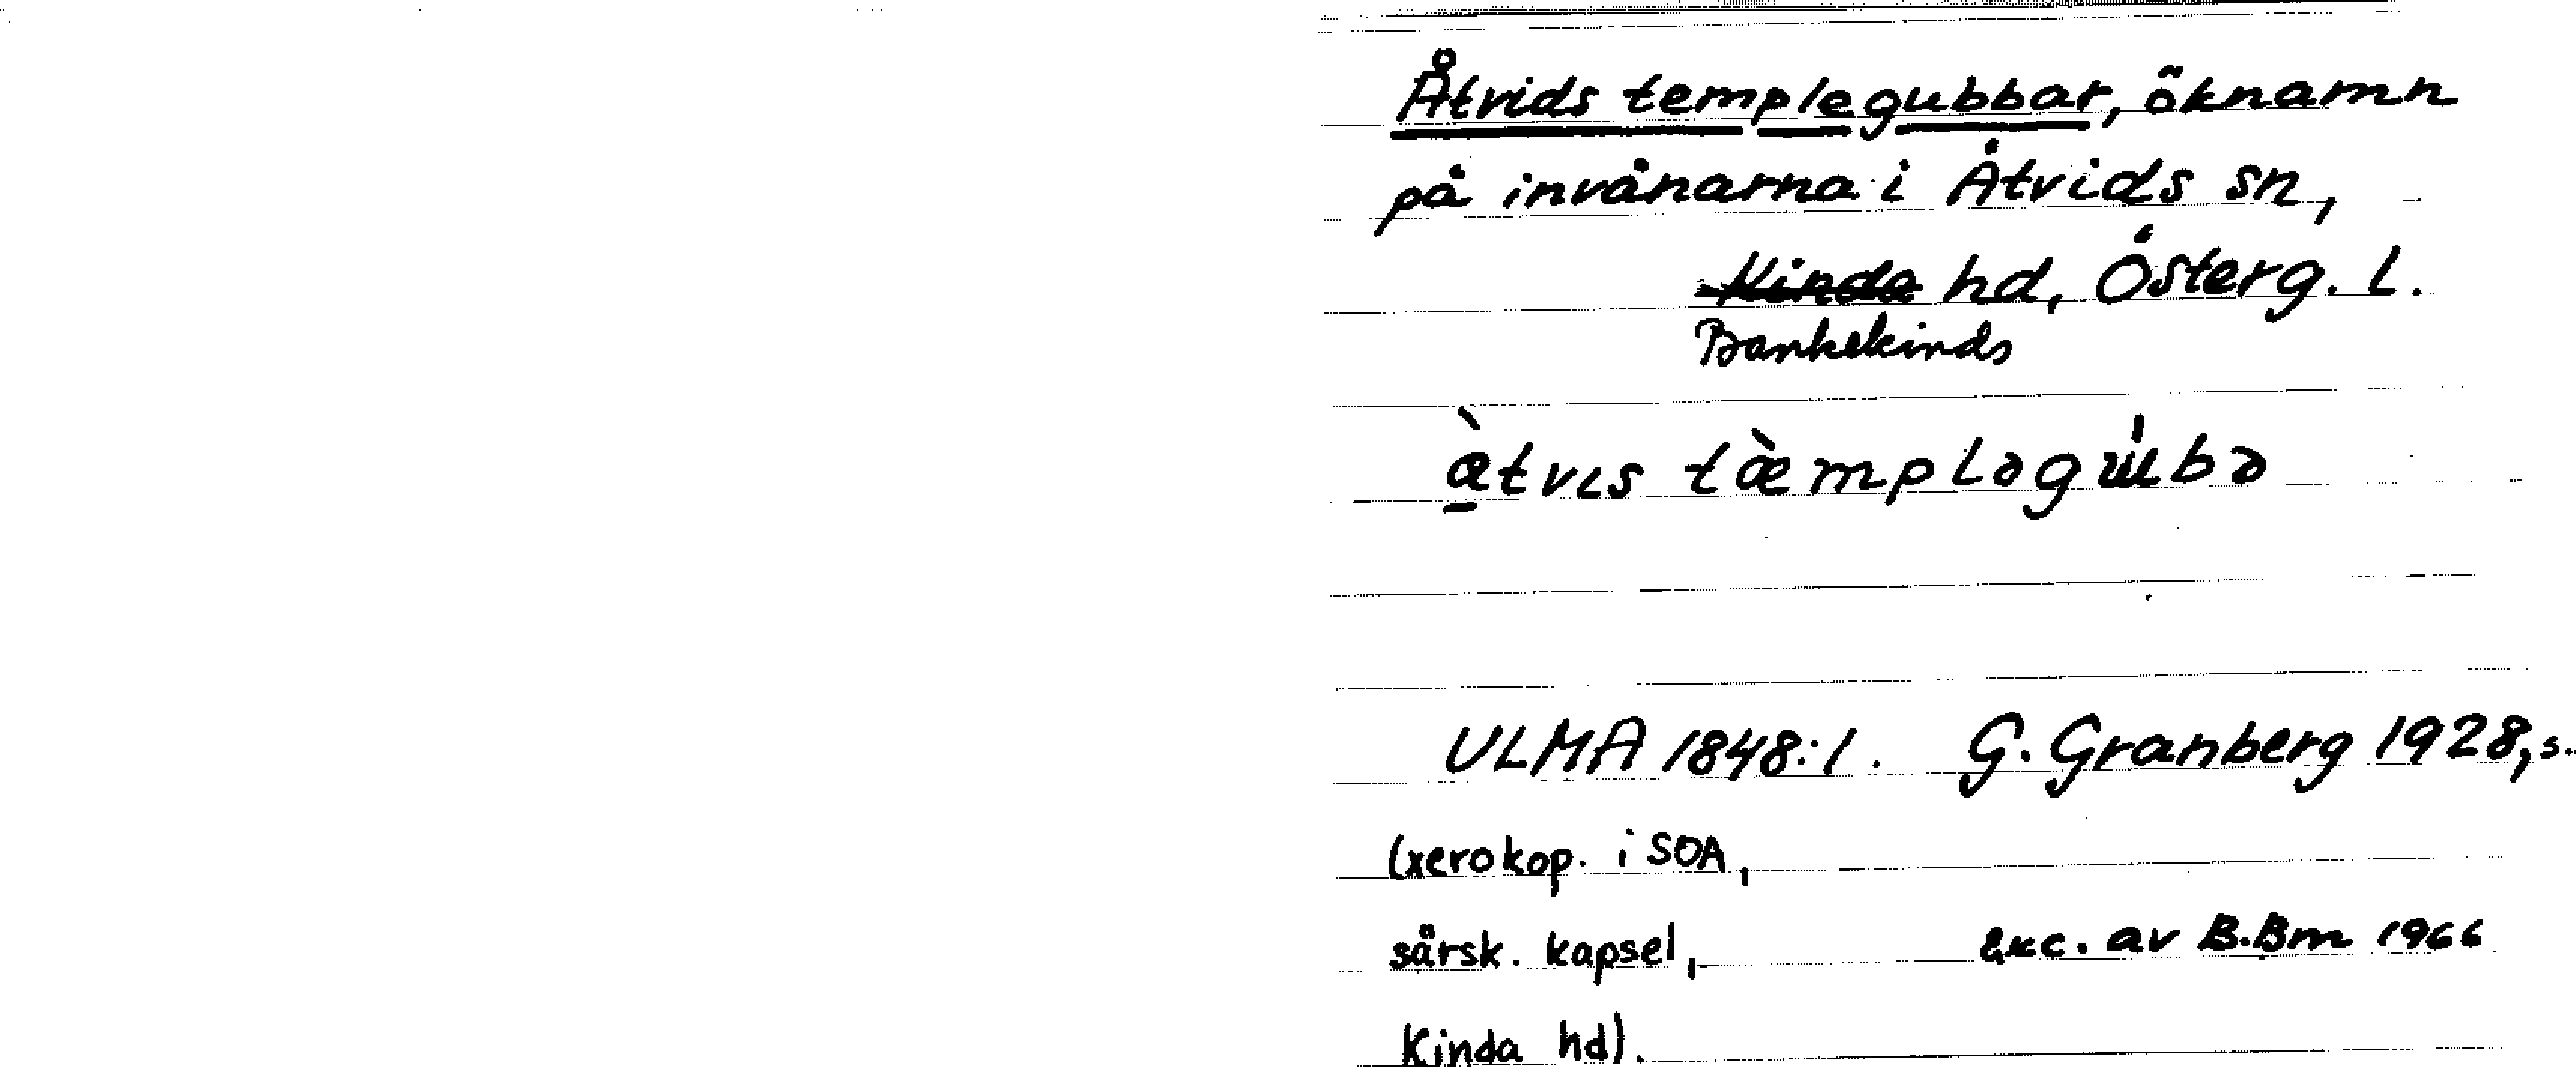 Åtvids templegubbar, öknamn
på invånarna i Åtvids sn,
Kinda hd, Österg. l.
Bankekinds
ULMA 1848:1. G. Granberg 1928, s.
(xerokop. i SOA,
särsk. kapsel, Exc. av B.Bm 1966
Kinda hd).